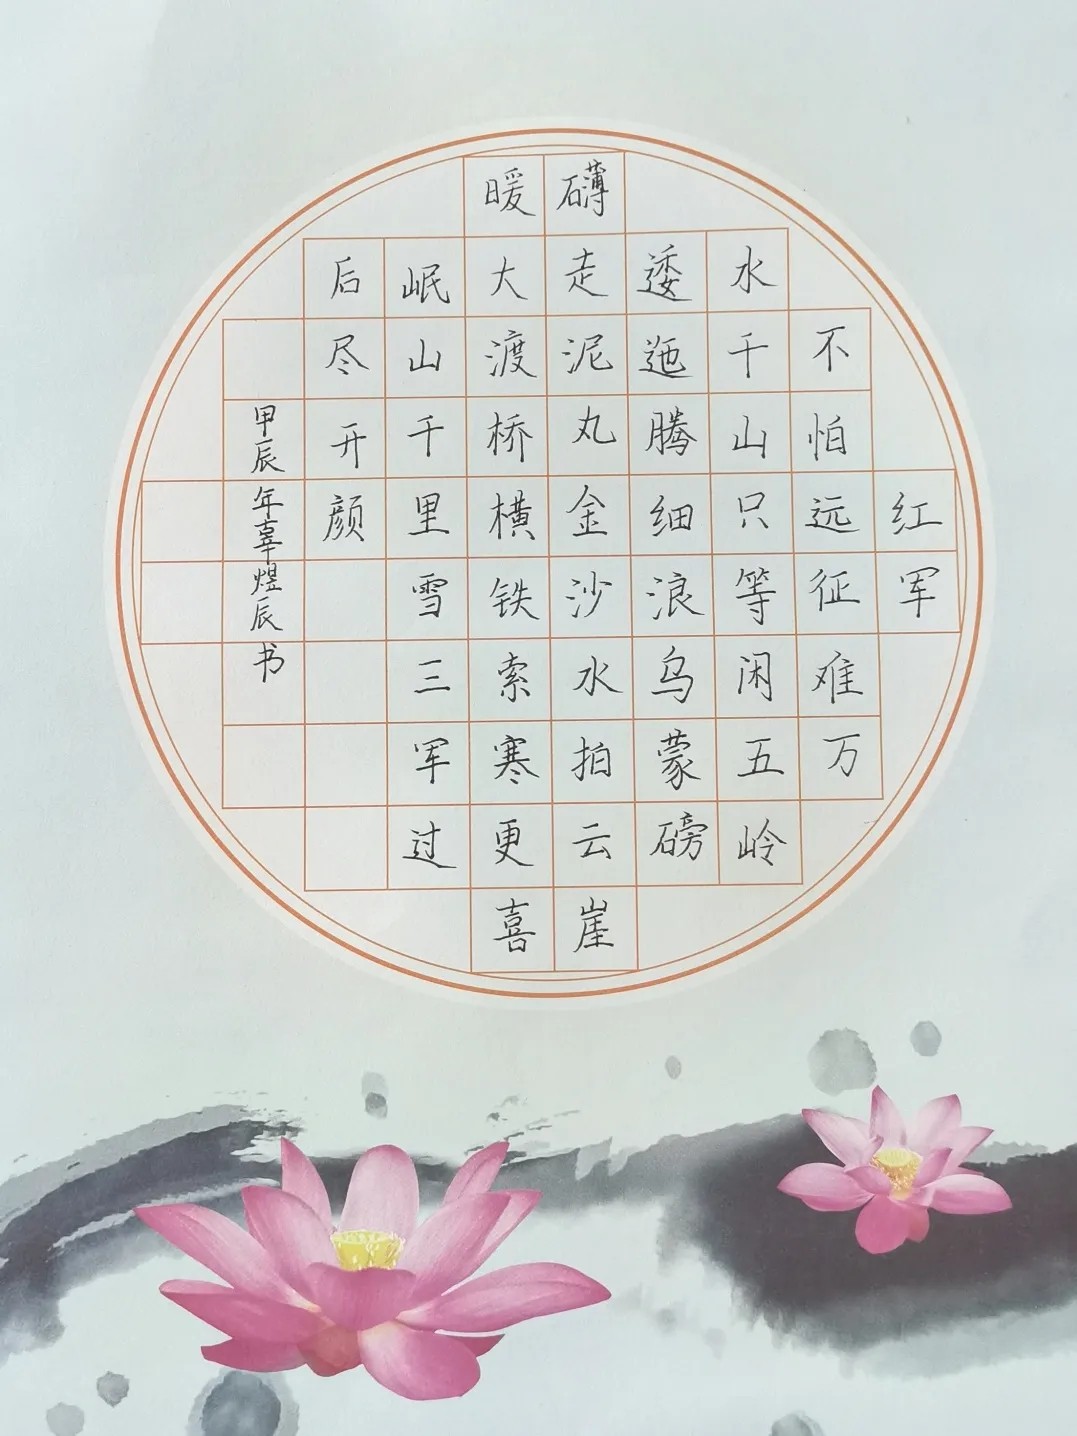 红军
不怕远征难万
水千山只等闲五岭
逶迤腾细浪乌蒙磅
礴走泥丸金沙水拍云崖
暖大渡桥横铁索寒更喜
岷山千里雪三军过
后尽开颜
甲辰年辜煜辰书